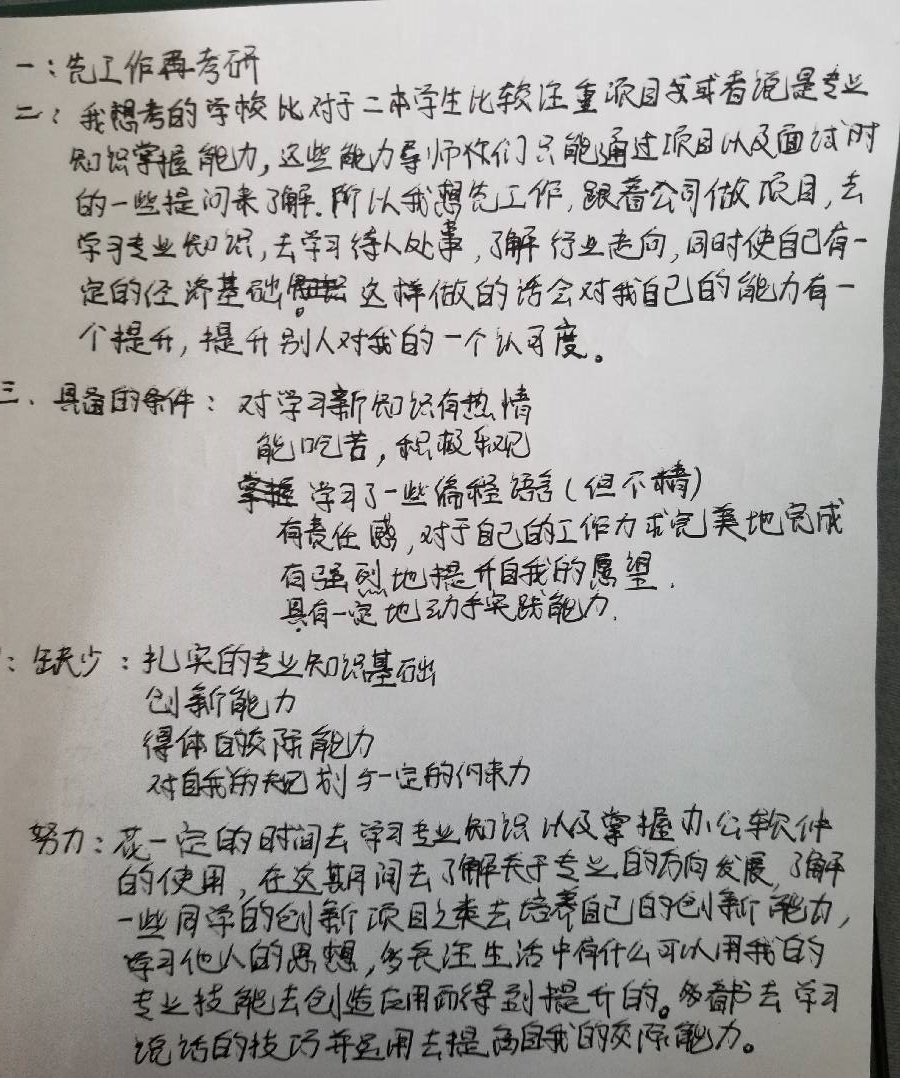 一：先工作再考研
二：我想考的学校比对于二本学生比较注重项目或或者说是专业
知识掌握能力，这些能力导师他们只能通过项目以及面试时
的一些提问来了解．所以我想先工作，跟着公司做项目，去
学习专业知识，去学习待人处事，了解行业走向，同时使自己有一
定的经济基础。这样做的话会对我自己的能力有一
个提升，提升别人对我的一个认可度。
三．具备的条件：对学习新知识有热情
能吃苦，积极乐观
掌握 学习了一些编程语言（但不精）
有责任感，对于自己的工作力求完美地完成
有强烈地提升自我的愿望．
具有一定地动手实践能力．
：缺少：扎实的专业知识基础
创新能力
得体的交际能力
对自我的规划与一定的约束力
努力：花一定的时间去学习专业知识以及掌握办公软件
的使用，在这期间去了解关于专业的方向发展，了解
一些同学的创新项目之类去培养自己的创新能力，
学习他人的思想，多关注生活中有什么可以用我的
专业技能去创造应用而得到提升的。多看书去学习
说话的技巧并运用去提高自我的交际能力。